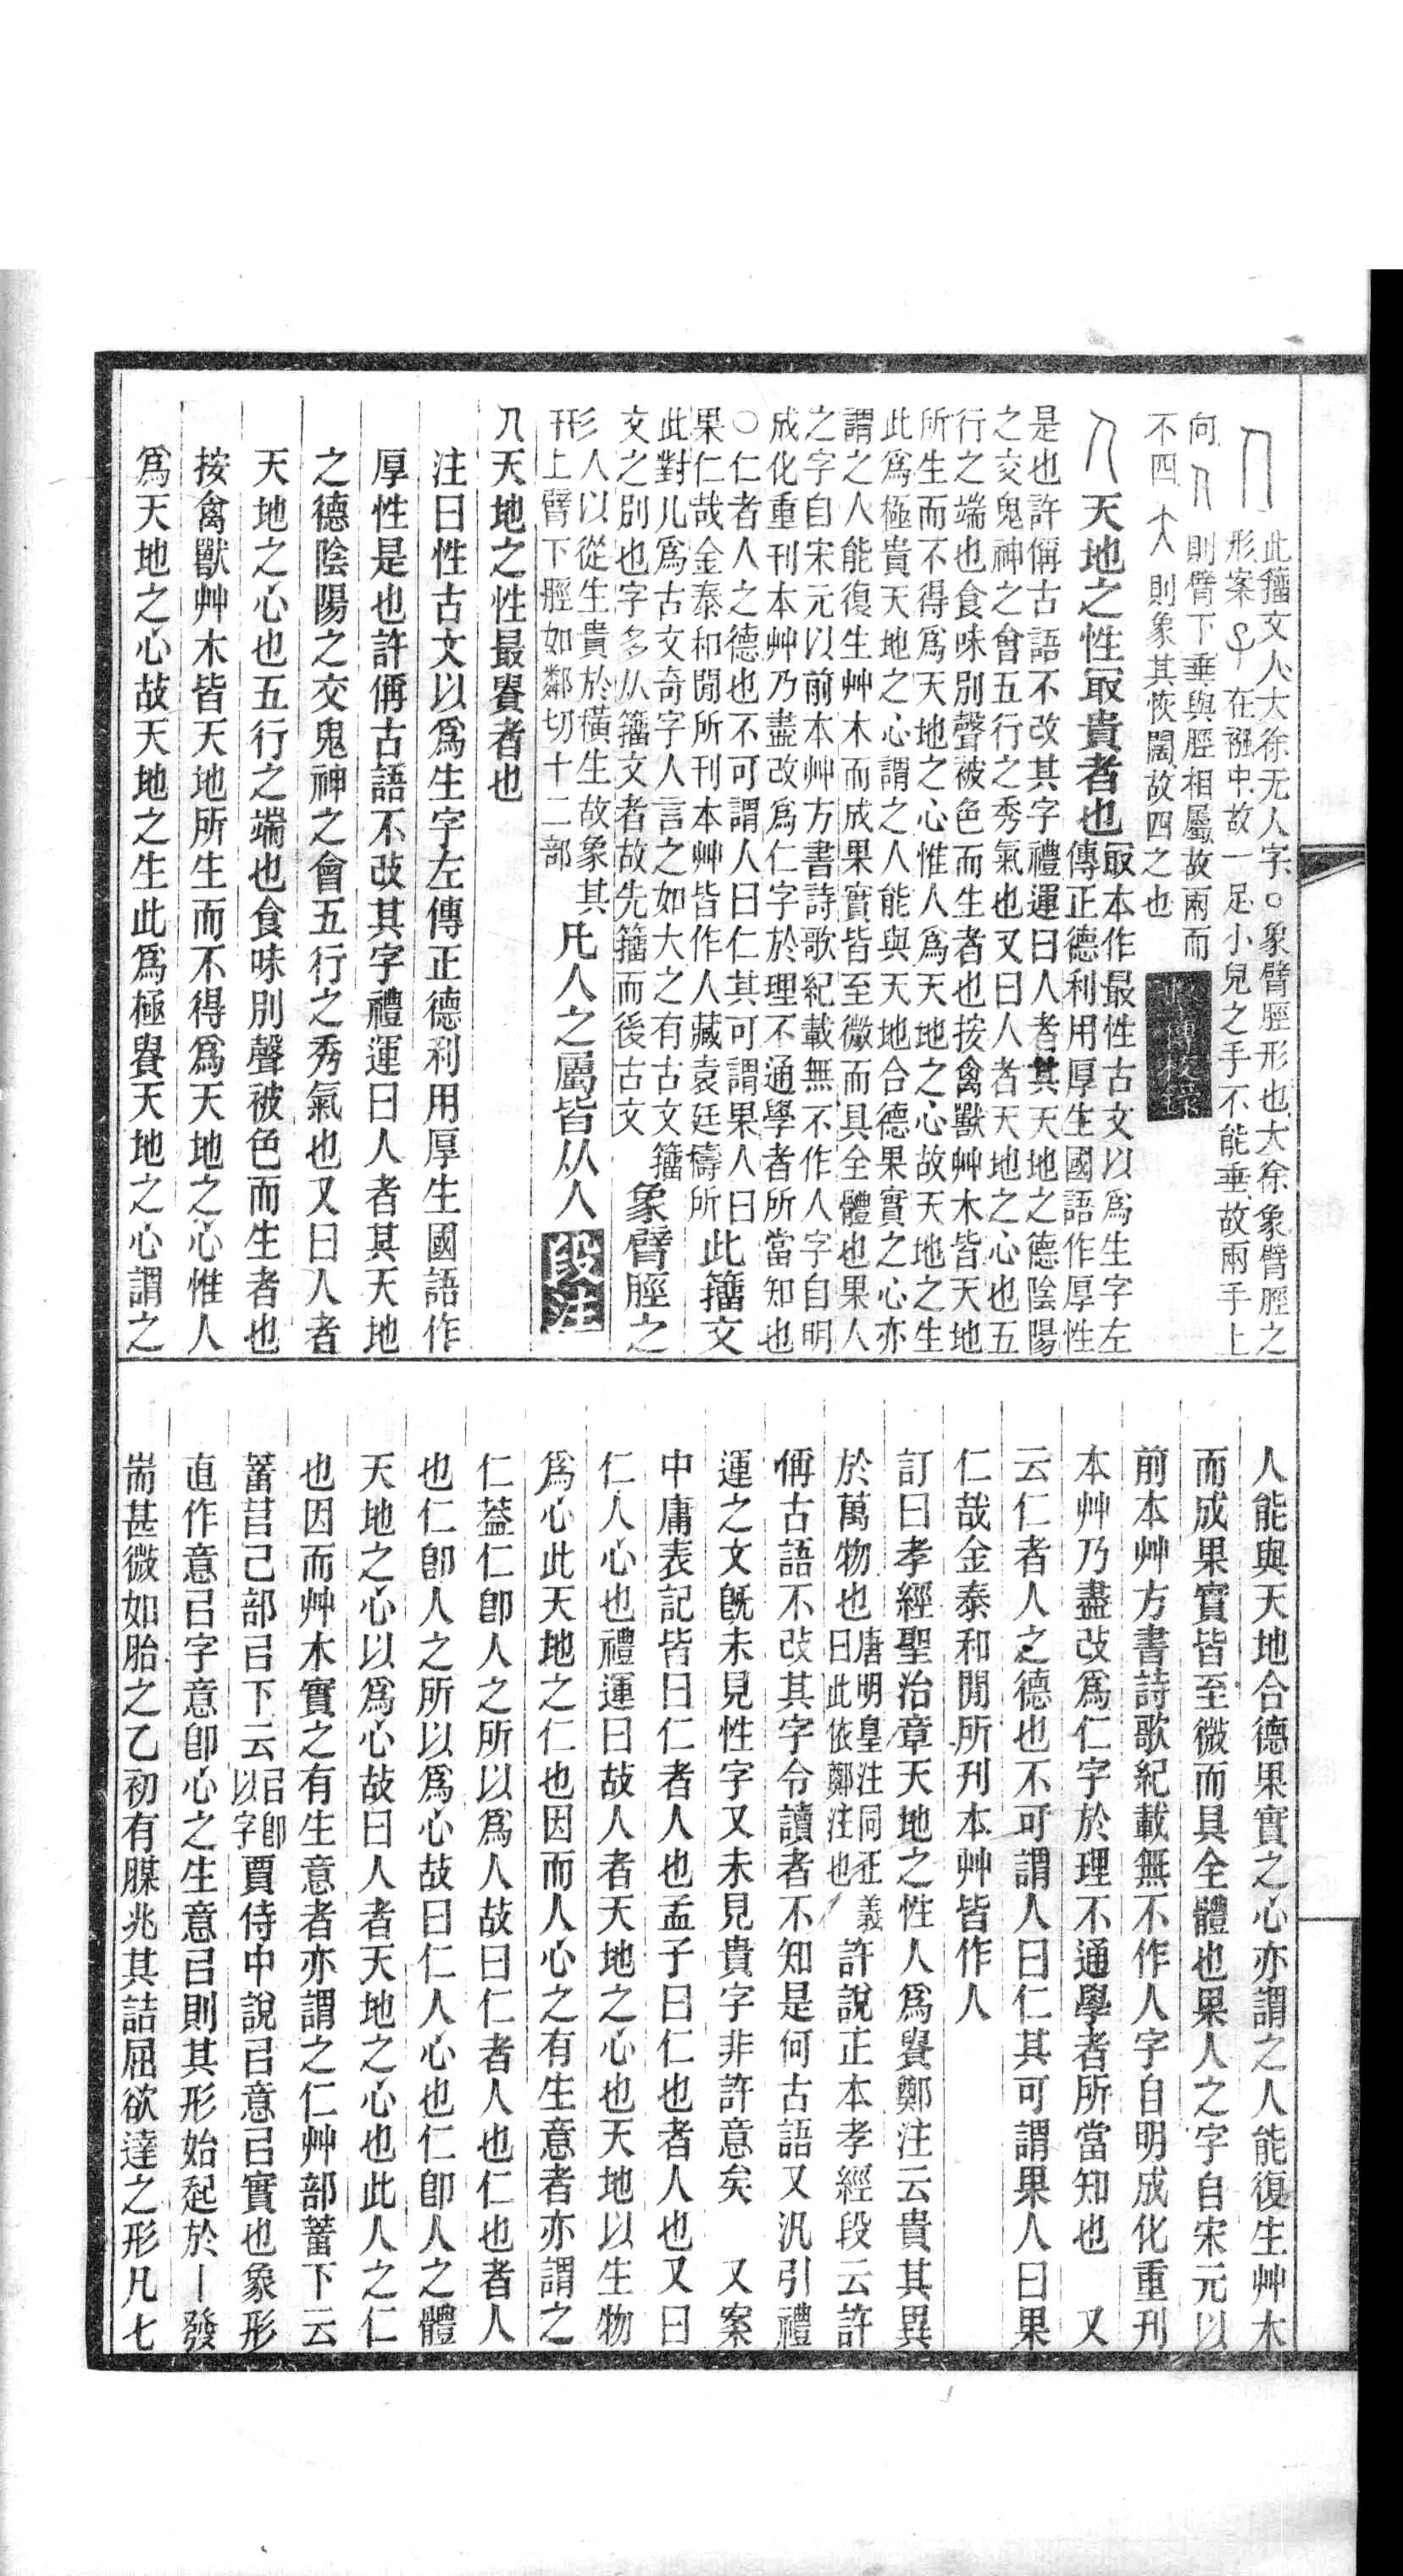 此籀文人大徐无人字○象臂脛形也大徐象臂脛之
形案𢀓在襁中故一足小兒之手不能垂故兩手上
向人則臂下垂與脛相屬故兩而
不四大則象其恢闊故四之也
人天地之性㝡貴者也
㝡本作最性古文以爲生字左
傳正德利用厚生國語作厚性
是也許偁古語不改其字禮運曰人者其天地之德陰陽
之交鬼神之會五行之秀氣也又曰人者天地之心也五
行之端也食味別聲被色而生者也按禽獸艸木皆天地
所生而不得爲天地之心惟人爲天地之心故天地之生
此爲極貴天地之心謂之人能與天地合德果實之心亦
謂之人能復生艸木而成果實皆至微而具全體也果人
之字自宋元以前本艸方書詩歌紀載無不作人字自明
成化重刊本艸乃盡改爲仁字於理不通學者所當知也
○仁者人之德也不可謂人曰仁其可謂果人曰
果仁哉金泰和閒所刊本艸皆作人藏袁廷檮所
此籀文
此對儿爲古文奇字人言之如大之有古文籀
文之別也字多从籀文者故先籀而後古文
象臂脛之
形人以從生貴於橫生故象其
㓝上臂下脛如鄰切十二部
凡人之屬皆从人
段注
人天地之性最貴者也
注曰性古文以爲生字左傳正德利用厚生國語作
厚性是也許偁古語不改其字禮運曰人者其天地
之德陰陽之交鬼神之會五行之秀氣也又曰人者
天地之心也五行之端也食味別聲被色而生者也
按禽獸艸木皆天地所生而不得爲天地之心惟人
爲天地之心故天地之生此爲極貴天地之心謂之
人能與天地合德果實之心亦謂之人能復生艸木
而成果實皆至微而具全體也果人之字自宋元以
前本艸方書詩歌紀載無不作人字自明成化重刊
本艸乃盡改爲仁字於理不通學者所當知也 又
云仁者人之德也不可謂人曰仁其可謂果人曰果
仁哉金泰和閒所刊本艸皆作人
訂曰孝經聖治章天地之性人爲貴鄭注云貴其異
於萬物也
唐明皇注同正義
曰此依鄭注也
許說正本孝經段云許
偁古語不改其字令讀者不知是何古語又汎引禮
運之文旣未見性字又未見貴字非許意矣 又案
中庸表記皆曰仁者人也孟子曰仁也者人也又曰
仁人心也禮運曰故人者天地之心也天地以生物
爲心此天地之仁也因而人心之有生意者亦謂之
仁葢仁卽人之所以爲人故曰仁者人也仁也者人
也仁卽人之所以爲心故曰仁人心也仁卽人之體
天地之心以爲心故曰人者天地之心也此人之仁
也因而艸木實之有生意者亦謂之仁艸部薏下云
薏苢己部㠯下云
㠯卽
以字
賈侍中說㠯意㠯實也象形
直作意㠯字意卽心之生意㠯則其形始起於丨發
耑甚微如胎之乙初有腜兆其詰屈欲達之形凡七